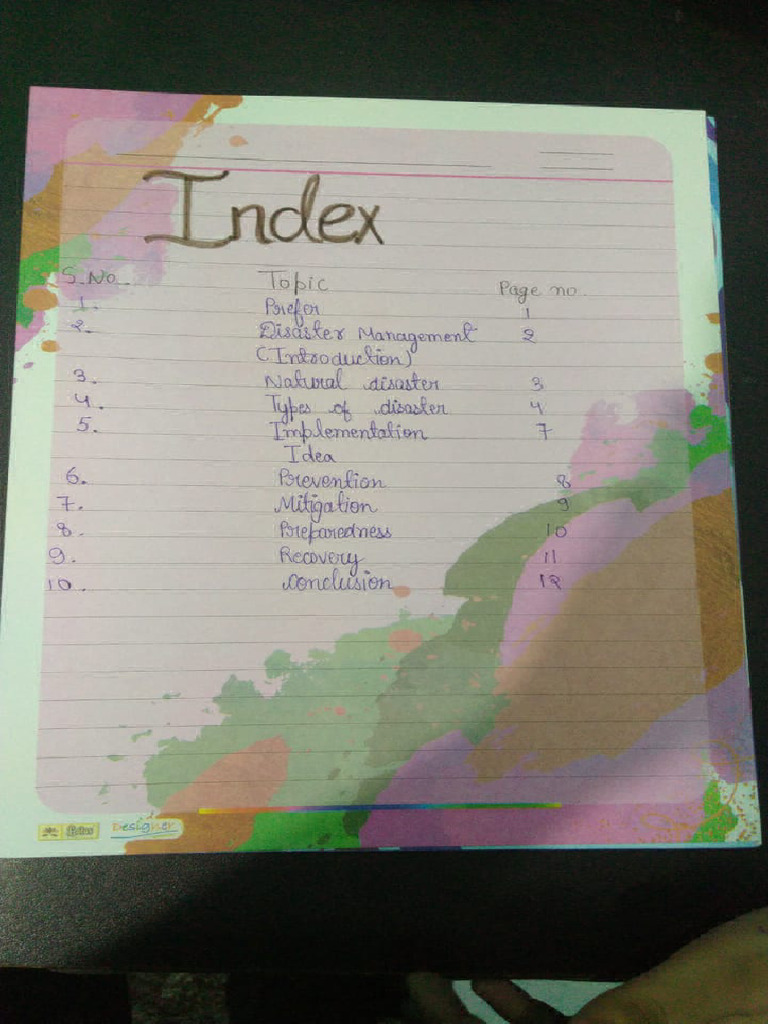 Index
S.No. Topic Page no.
1. Prefor 1
2. Disaster Management 2
(Introduction)
3. Natural disaster 3
4. Types of disaster 4
5. Implementation 7
Idea
6. Prevention 8
7. Mitigation 9
8. Preparedness 10
9. Recovery 11
10. conclusion 12
Designer